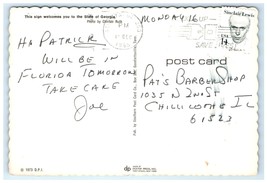 This sign welcomes you to the State of Georgia.
MONDAY 16
HA PATRICK
WILL BE IN
FLORIDA TOMORROW
TAKE CARE
Joe
Sinclair Lewis
14
post card
PAT'S BARBERSHOP
1035 N 2ND ST
CHILLICOTHE IL
61523
© 1973 S.P.I.